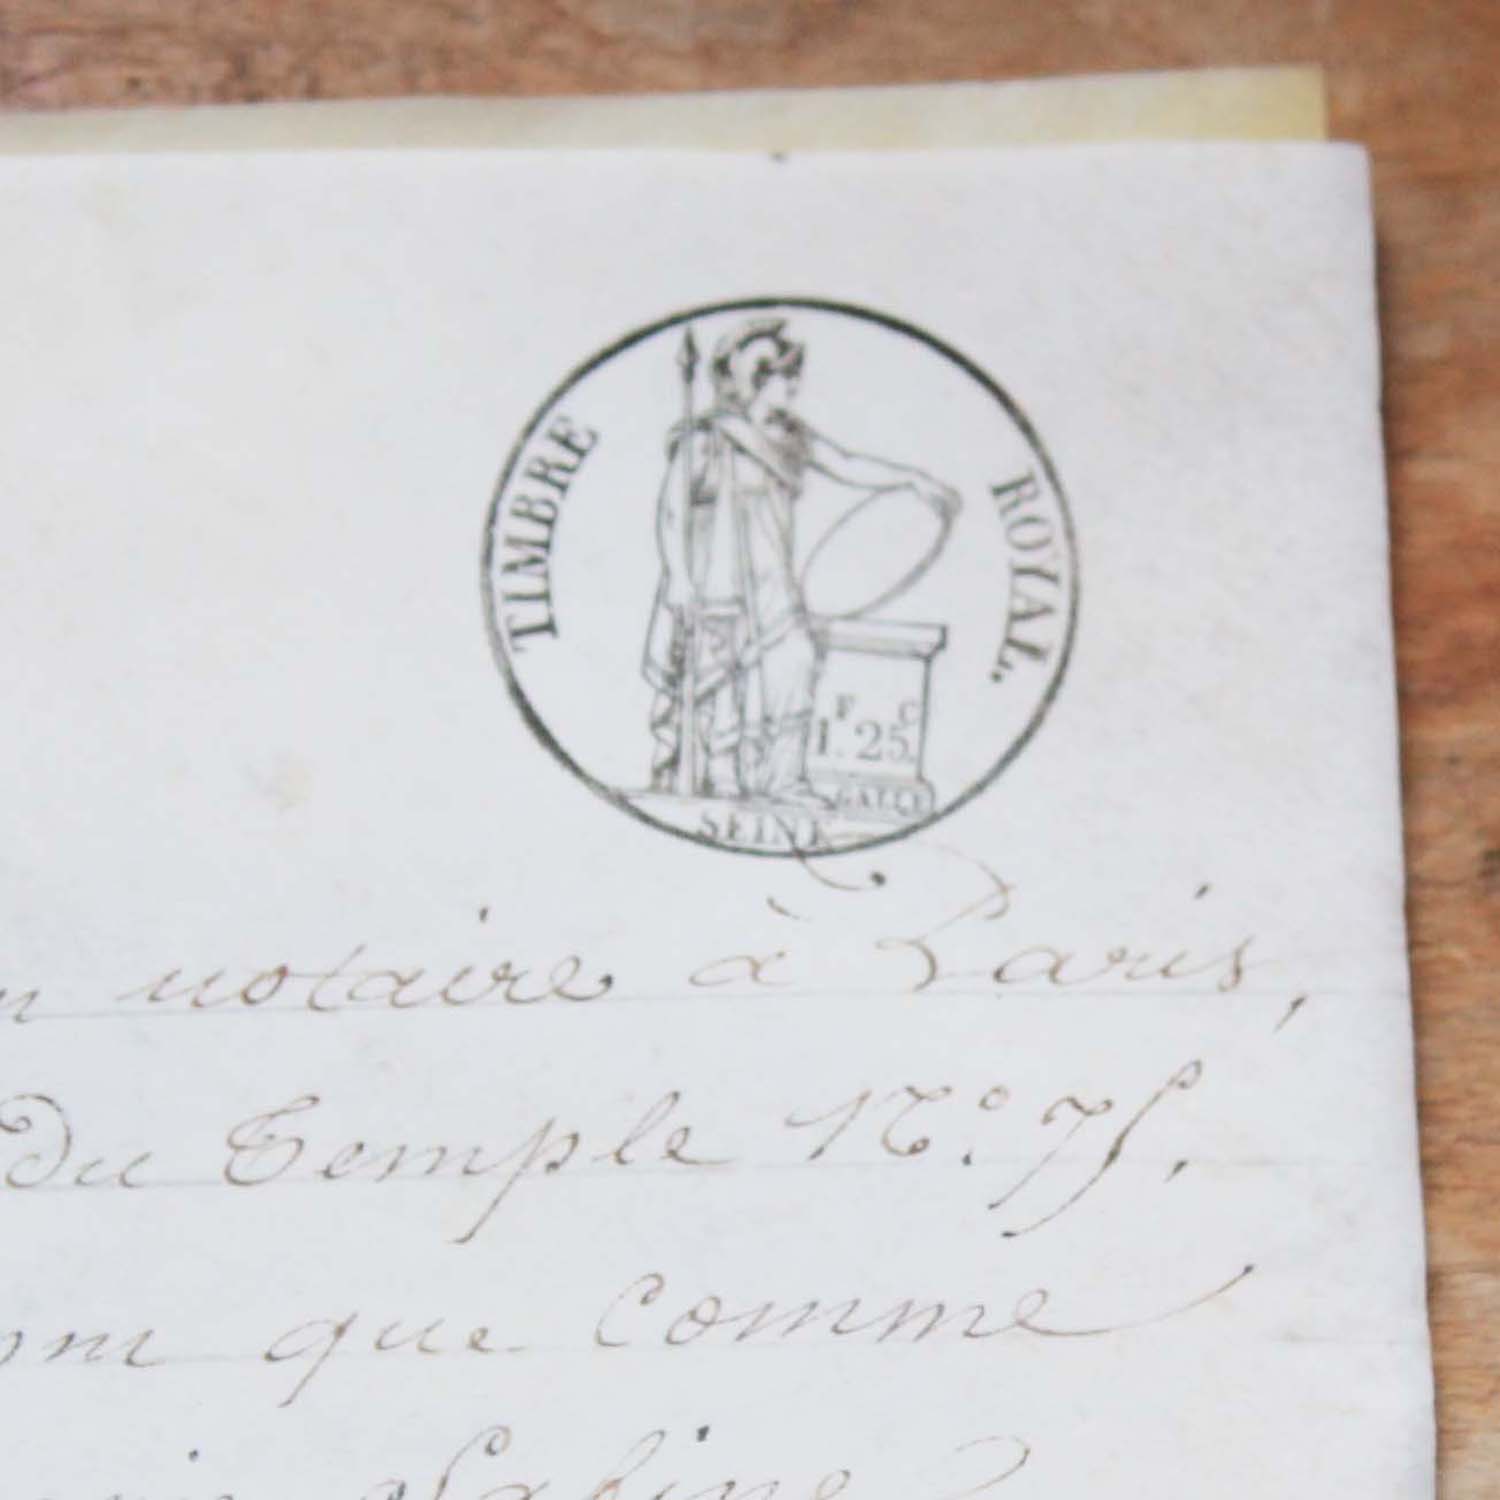 TIMBRE ROYAL.
F C
1. 25
GALLE
SEINE
notaire à Paris,
du Temple N.º 75.
que comme
Sabine